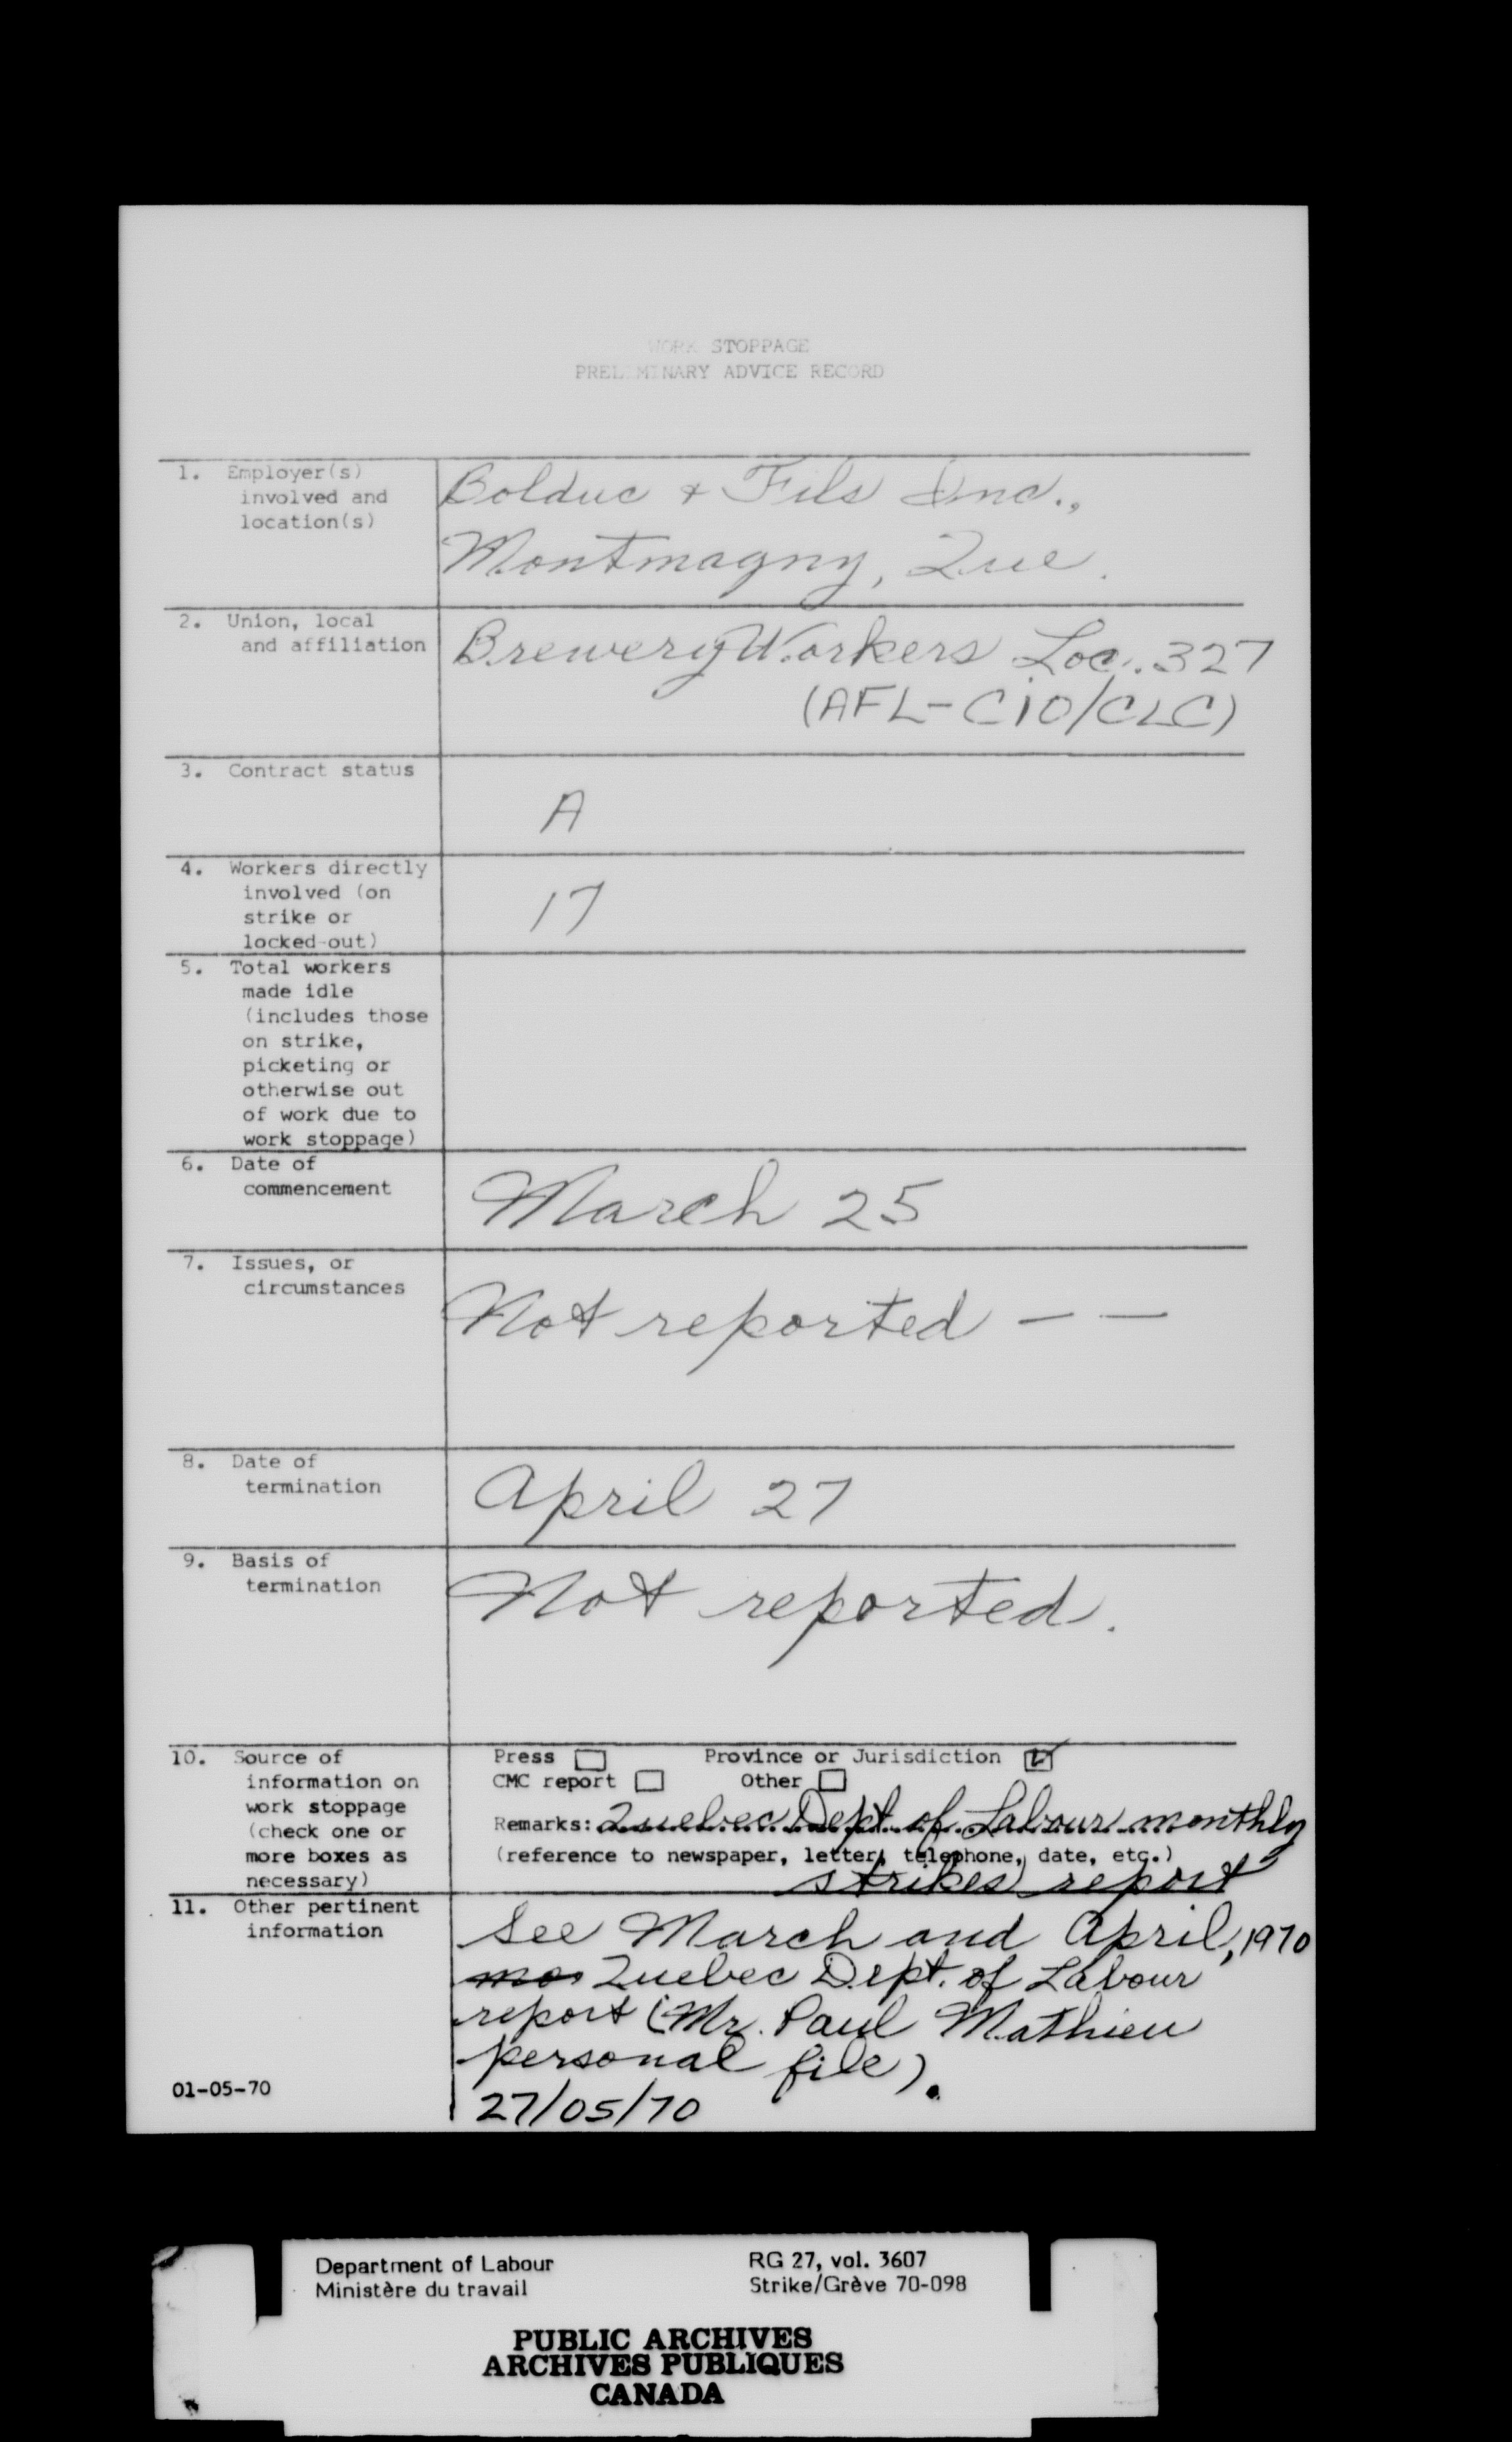 WORK STOPPAGE
PRELIMINARY ADVICE RECORD
1. Employer(s)
involved and
location(s)
Bolduc & Fils Inc.,
Montmagny, Que.
2. Union, local
and affiliation
Brewery Workers Loc. 327
(AFL-CIO/CLC)
3. Contract status
A
4. Workers directly
involved (on
strike or
locked-out)
17
5. Total workers
made idle
(includes those
on strike,
picketing or
otherwise out
of work due to
work stoppage)
6. Date of
commencement
March 25
7. Issues, or
circumstances
Not reported — —
8. Date of
termination
April 27
9. Basis of
termination
Not reported.
10. Source of
information on
work stoppage
(check one or
more boxes as
necessary)
Press Province or Jurisdiction
CMC report Other
Remarks: Quebec Dept of Labour monthly
(reference to newspaper, letter, telephone, date, etc.)
strikes report
11. Other pertinent
information
See March and April, 1970
mos Quebec Dept. of Labour
report (Mr. Paul Mathieu
personal file).
27/05/70
01-05-70
Department of Labour
Ministère du travail
RG 27, vol. 3607
Strike/Grève 70-098
PUBLIC ARCHIVES
ARCHIVES PUBLIQUES
CANADA